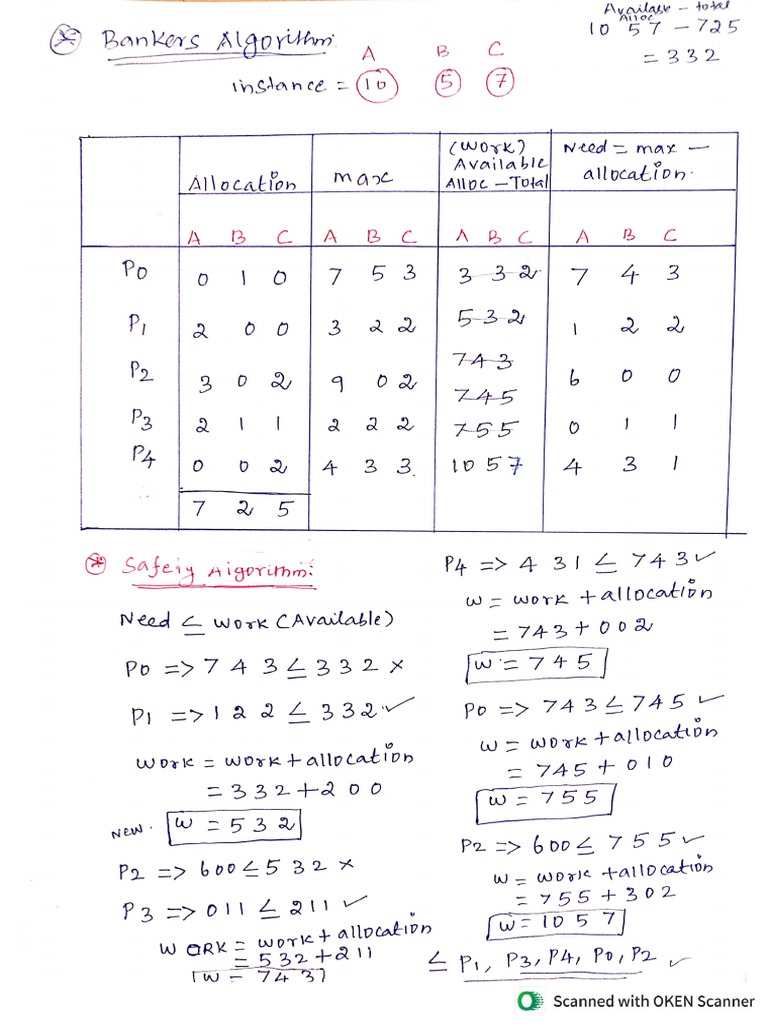 Bankers Algorithm:
Available - total
Alloc
10 5 7 - 725
= 332
A B C
instance = 10 5 7
Allocation
max
(Work)
Available
Alloc - Total
Need = max -
allocation.
A B C A B C A B C A B C
P0 0 1 0 7 5 3 3 3 2 7 4 3
P1 2 0 0 3 2 2 5 3 2 1 2 2
P2 3 0 2 9 0 2 7 4 3 6 0 0
7 4 5
P3 2 1 1 2 2 2 7 5 5 0 1 1
P4 0 0 2 4 3 3. 10 5 7 4 3 1
7 2 5
Safeiy Aigorithm:
Need ≤ Work (Available)
P0 => 7 4 3 ≤ 3 3 2 ×
P1 => 1 2 2 ≤ 3 3 2 ✓
Work = Work + allocation
= 3 3 2 + 2 0 0
New. W = 5 3 2
P2 => 600 ≤ 5 3 2 ×
P3 => 011 ≤ 211 ✓
WORK = work + allocation
= 532 + 211
W = 743
P4 => 4 3 1 ≤ 7 4 3 ✓
W = work + allocation
= 743 + 002
W = 7 4 5
P0 => 743 ≤ 745 ✓
W = work + allocation
= 745 + 010
W = 755
P2 => 600 ≤ 7 5 5 ✓
W = work + allocation
= 755 + 302
W = 10 5 7
≤ P1, P3, P4, P0, P2 ✓
Scanned with OKEN Scanner